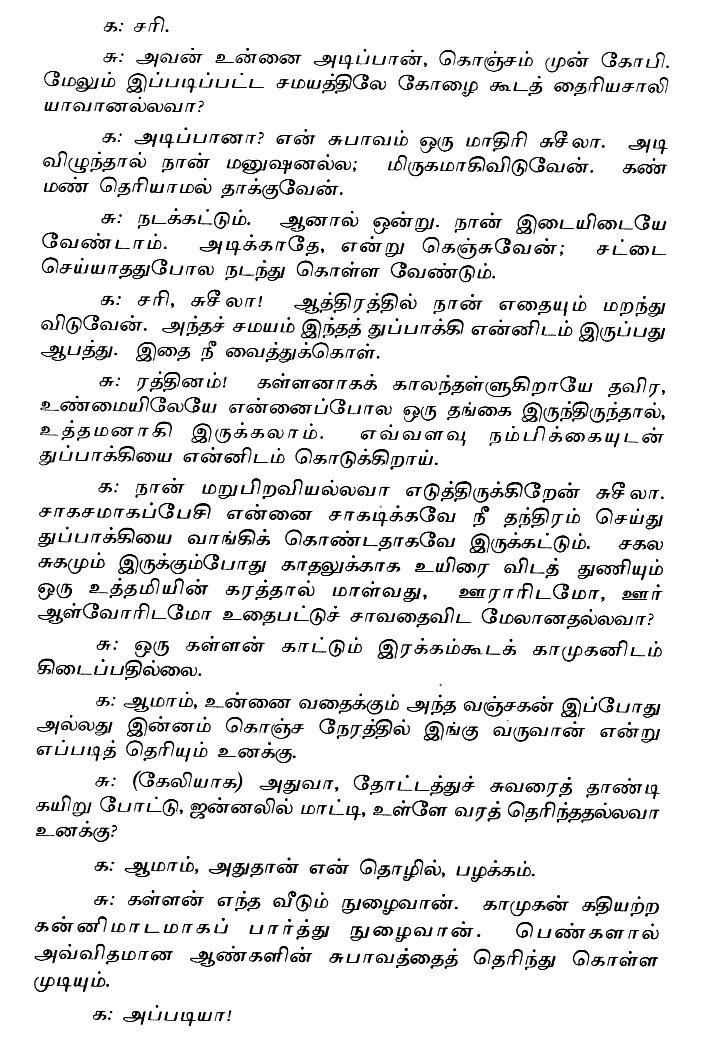 க: சரி.
சு: அவன் உன்னை அடிப்பான், கொஞ்சம் முன் கோபி.
மேலும் இப்படிப்பட்ட சமயத்திலே கோழை கூடத் தைரியசாலி
யாவானல்லவா?
க: அடிப்பானா? என் சுபாவம் ஒரு மாதிரி சுசீலா. அடி
விழுந்தால் நான் மனுஷனல்ல; மிருகமாகிவிடுவேன். கண்
மண் தெரியாமல் தாக்குவேன்.
சு: நடக்கட்டும். ஆனால் ஒன்று. நான் இடையிடையே
வேண்டாம். அடிக்காதே, என்று கெஞ்சுவேன்; சட்டை
செய்யாததுபோல நடந்து கொள்ள வேண்டும்.
க: சரி, சுசீலா! ஆத்திரத்தில் நான் எதையும் மறந்து
விடுவேன். அந்தச் சமயம் இந்தத் துப்பாக்கி என்னிடம் இருப்பது
ஆபத்து. இதை நீ வைத்துக்கொள்.
சு: ரத்தினம்! கள்ளனாகக் காலந்தள்ளுகிறாயே தவிர,
உண்மையிலேயே என்னைப்போல ஒரு தங்கை இருந்திருந்தால்,
உத்தமனாகி இருக்கலாம். எவ்வளவு நம்பிக்கையுடன்
துப்பாக்கியை என்னிடம் கொடுக்கிறாய்.
க: நான் மறுபிறவியல்லவா எடுத்திருக்கிறேன் சுசீலா.
சாகசமாகப்பேசி என்னை சாகடிக்கவே நீ தந்திரம் செய்து
துப்பாக்கியை வாங்கிக் கொண்டதாகவே இருக்கட்டும். சகல
சுகமும் இருக்கும்போது காதலுக்காக உயிரை விடத் துணியும்
ஒரு உத்தமியின் கரத்தால் மாள்வது, ஊராரிடமோ, ஊர்
ஆள்வோரிடமோ உதைபட்டுச் சாவதைவிட மேலானதல்லவா?
சு: ஒரு கள்ளன் காட்டும் இரக்கம்கூடக் காமுகனிடம்
கிடைப்பதில்லை.
க: ஆமாம், உன்னை வதைக்கும் அந்த வஞ்சகன் இப்போது
அல்லது இன்னம் கொஞ்ச நேரத்தில் இங்கு வருவான் என்று
எப்படித் தெரியும் உனக்கு.
சு: (கேலியாக) அதுவா, தோட்டத்துச் சுவரைத் தாண்டி
கயிறு போட்டு, ஜன்னலில் மாட்டி, உள்ளே வரத் தெரிந்ததல்லவா
உனக்கு?
க: ஆமாம், அதுதான் என் தொழில், பழக்கம்.
சு: கள்ளன் எந்த வீடும் நுழைவான். காமுகன் கதியற்ற
கன்னிமாடமாகப் பார்த்து நுழைவான். பெண்களால்
அவ்விதமான ஆண்களின் சுபாவத்தைத் தெரிந்து கொள்ள
முடியும்.
க: அப்படியா!